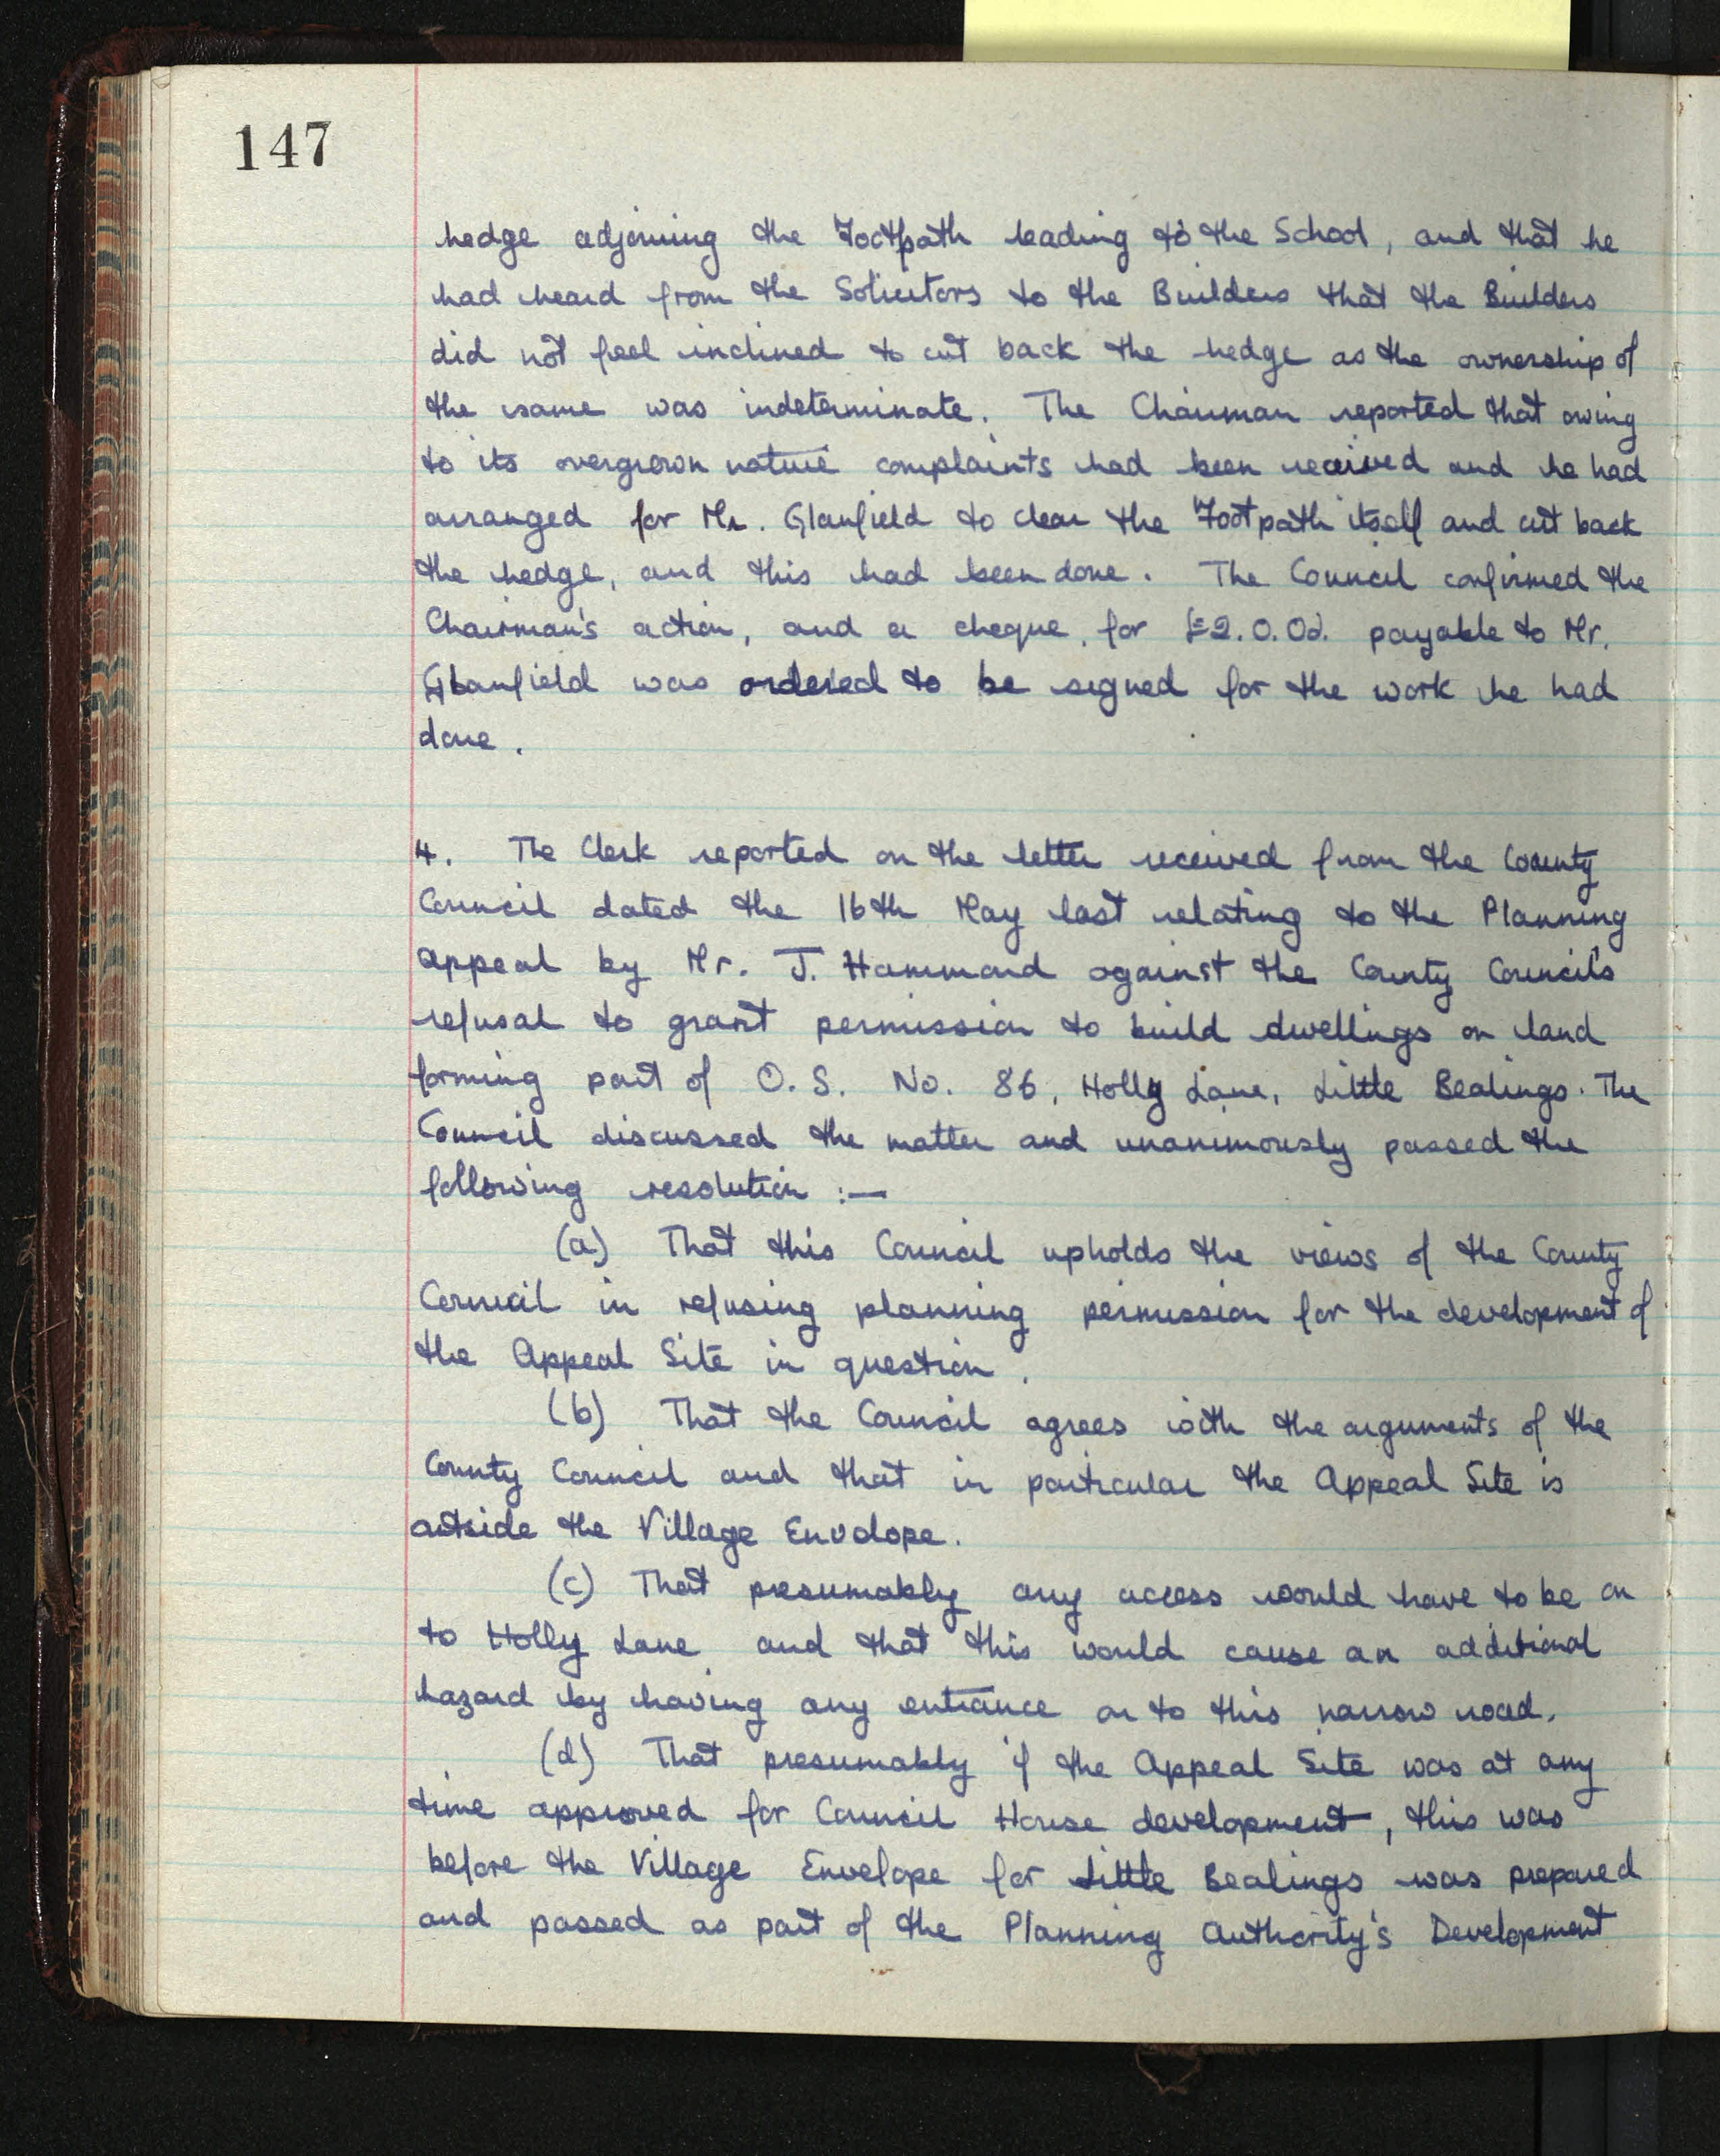 147
hedge adjoining the Footpath leading to the School, and that he
had heard from the Solicitors to the Builders that the Builders
did not feel inclined to cut back the hedge as the ownership of
the same was indeterminate. The Chairman reported that owing
to its overgrown nature complaints had been received and he had
arranged for Mr. Glanfield to clear the Footpath itself and cut back
the hedge, and this had been done. The Council confirmed the
Chairman's action, and a cheque for £2.0.0d. payable to Mr.
Glanfield was ordered to be signed for the work he had
done.
4. The Clerk reported on the letter received from the County
Council dated the 16th May last relating to the Planning
Appeal by Mr. J. Hammond against the County Council's
refusal to grant permission to build dwellings on land
forming part of O.S. No. 86, Holly Lane, Little Bealings. The
Council discussed the matter and unanimously passed the
following resolution :—
(a) That this Council upholds the views of the County
Council in refusing planning permission for the development of
the Appeal Site in question.
(b) That the Council agrees with the arguments of the
County Council and that in particular the Appeal Site is
outside the Village Envelope.
(c) That presumably any access would have to be on
to Holly Lane and that this would cause an additional
hazard by having any entrance on to this narrow road.
(d) That presumably if the Appeal Site was at any
time approved for Council House development, this was
before the Village Envelope for Little Bealings was prepared
and passed as part of the Planning Authority's Development